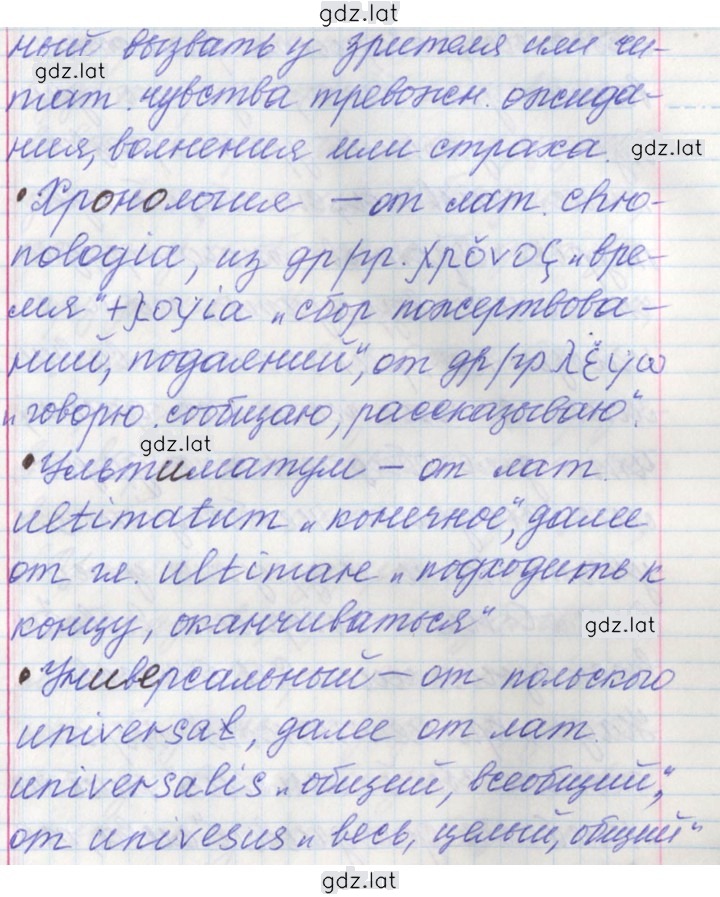 gdz.lat
ный вызвать у зрителя или чи-
gdz.lat
тат. чувства тревожн. ожида-
ния, волнения или страха.
gdz.lat
• Хронология – от лат. chro-
nologia, из др/гр. χρόνος „вре-
мя“ + λογία „сбор пожертвова-
ний, подаяний“, от др/гр λέγω
„говорю. сообщаю, рассказываю“.
gdz.lat
• Ультиматум – от лат.
ultimatum „конечное“, далее
от гл. ultimare „подходить к
концу, оканчиваться“
gdz.lat
• Универсальный – от польского
universał, далее от лат.
universalis „общий, всеобщий“,
от univesus „весь, целый, общий“
gdz.lat